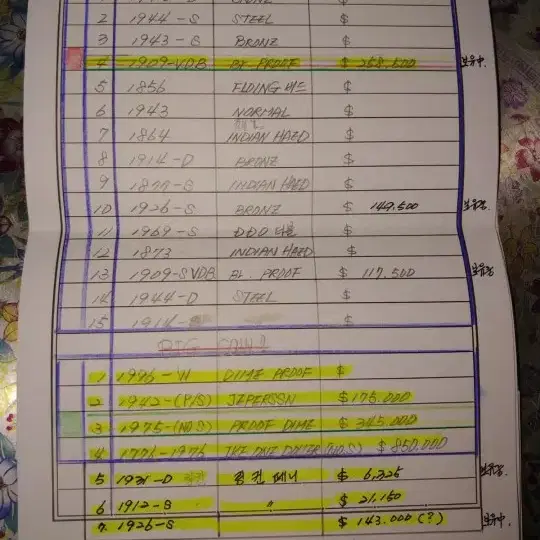 2 1944-S STEEL $
3 1943-S BRONZ $
4 1909-VDB BL. PROOF $ 258,500 보유中.
5 1856 FLDING 버드 $
6 1943 NORMAL $
7 1864 INDIAN HAED $
8 1914-D BRONZ $
9 1877-S INDIAN HAED $
10 1926-S BRONZ $ 149,500 보유중.
11 1969-S DDO $
12 1873 INDIAN HAED $
13 1909-SVDB BL. PROOF $ 117,500 보유중
14 1944-D STEEL $
15 1914-S $
1 1996-W DIME PROOF $
2 1942-(P/S) JEPERSSN $175.000
3 1975-(NO S) PROOF DIME $ 345.000
4 1776-1976 THE ONE DOLLER (NO.S) $ 850.000
5 1931-D 링컨 페니 $ 6,325 보유중.
6 1912-S " $ 21,150
7. 1926-S $ 143.000 (?) 보유中.